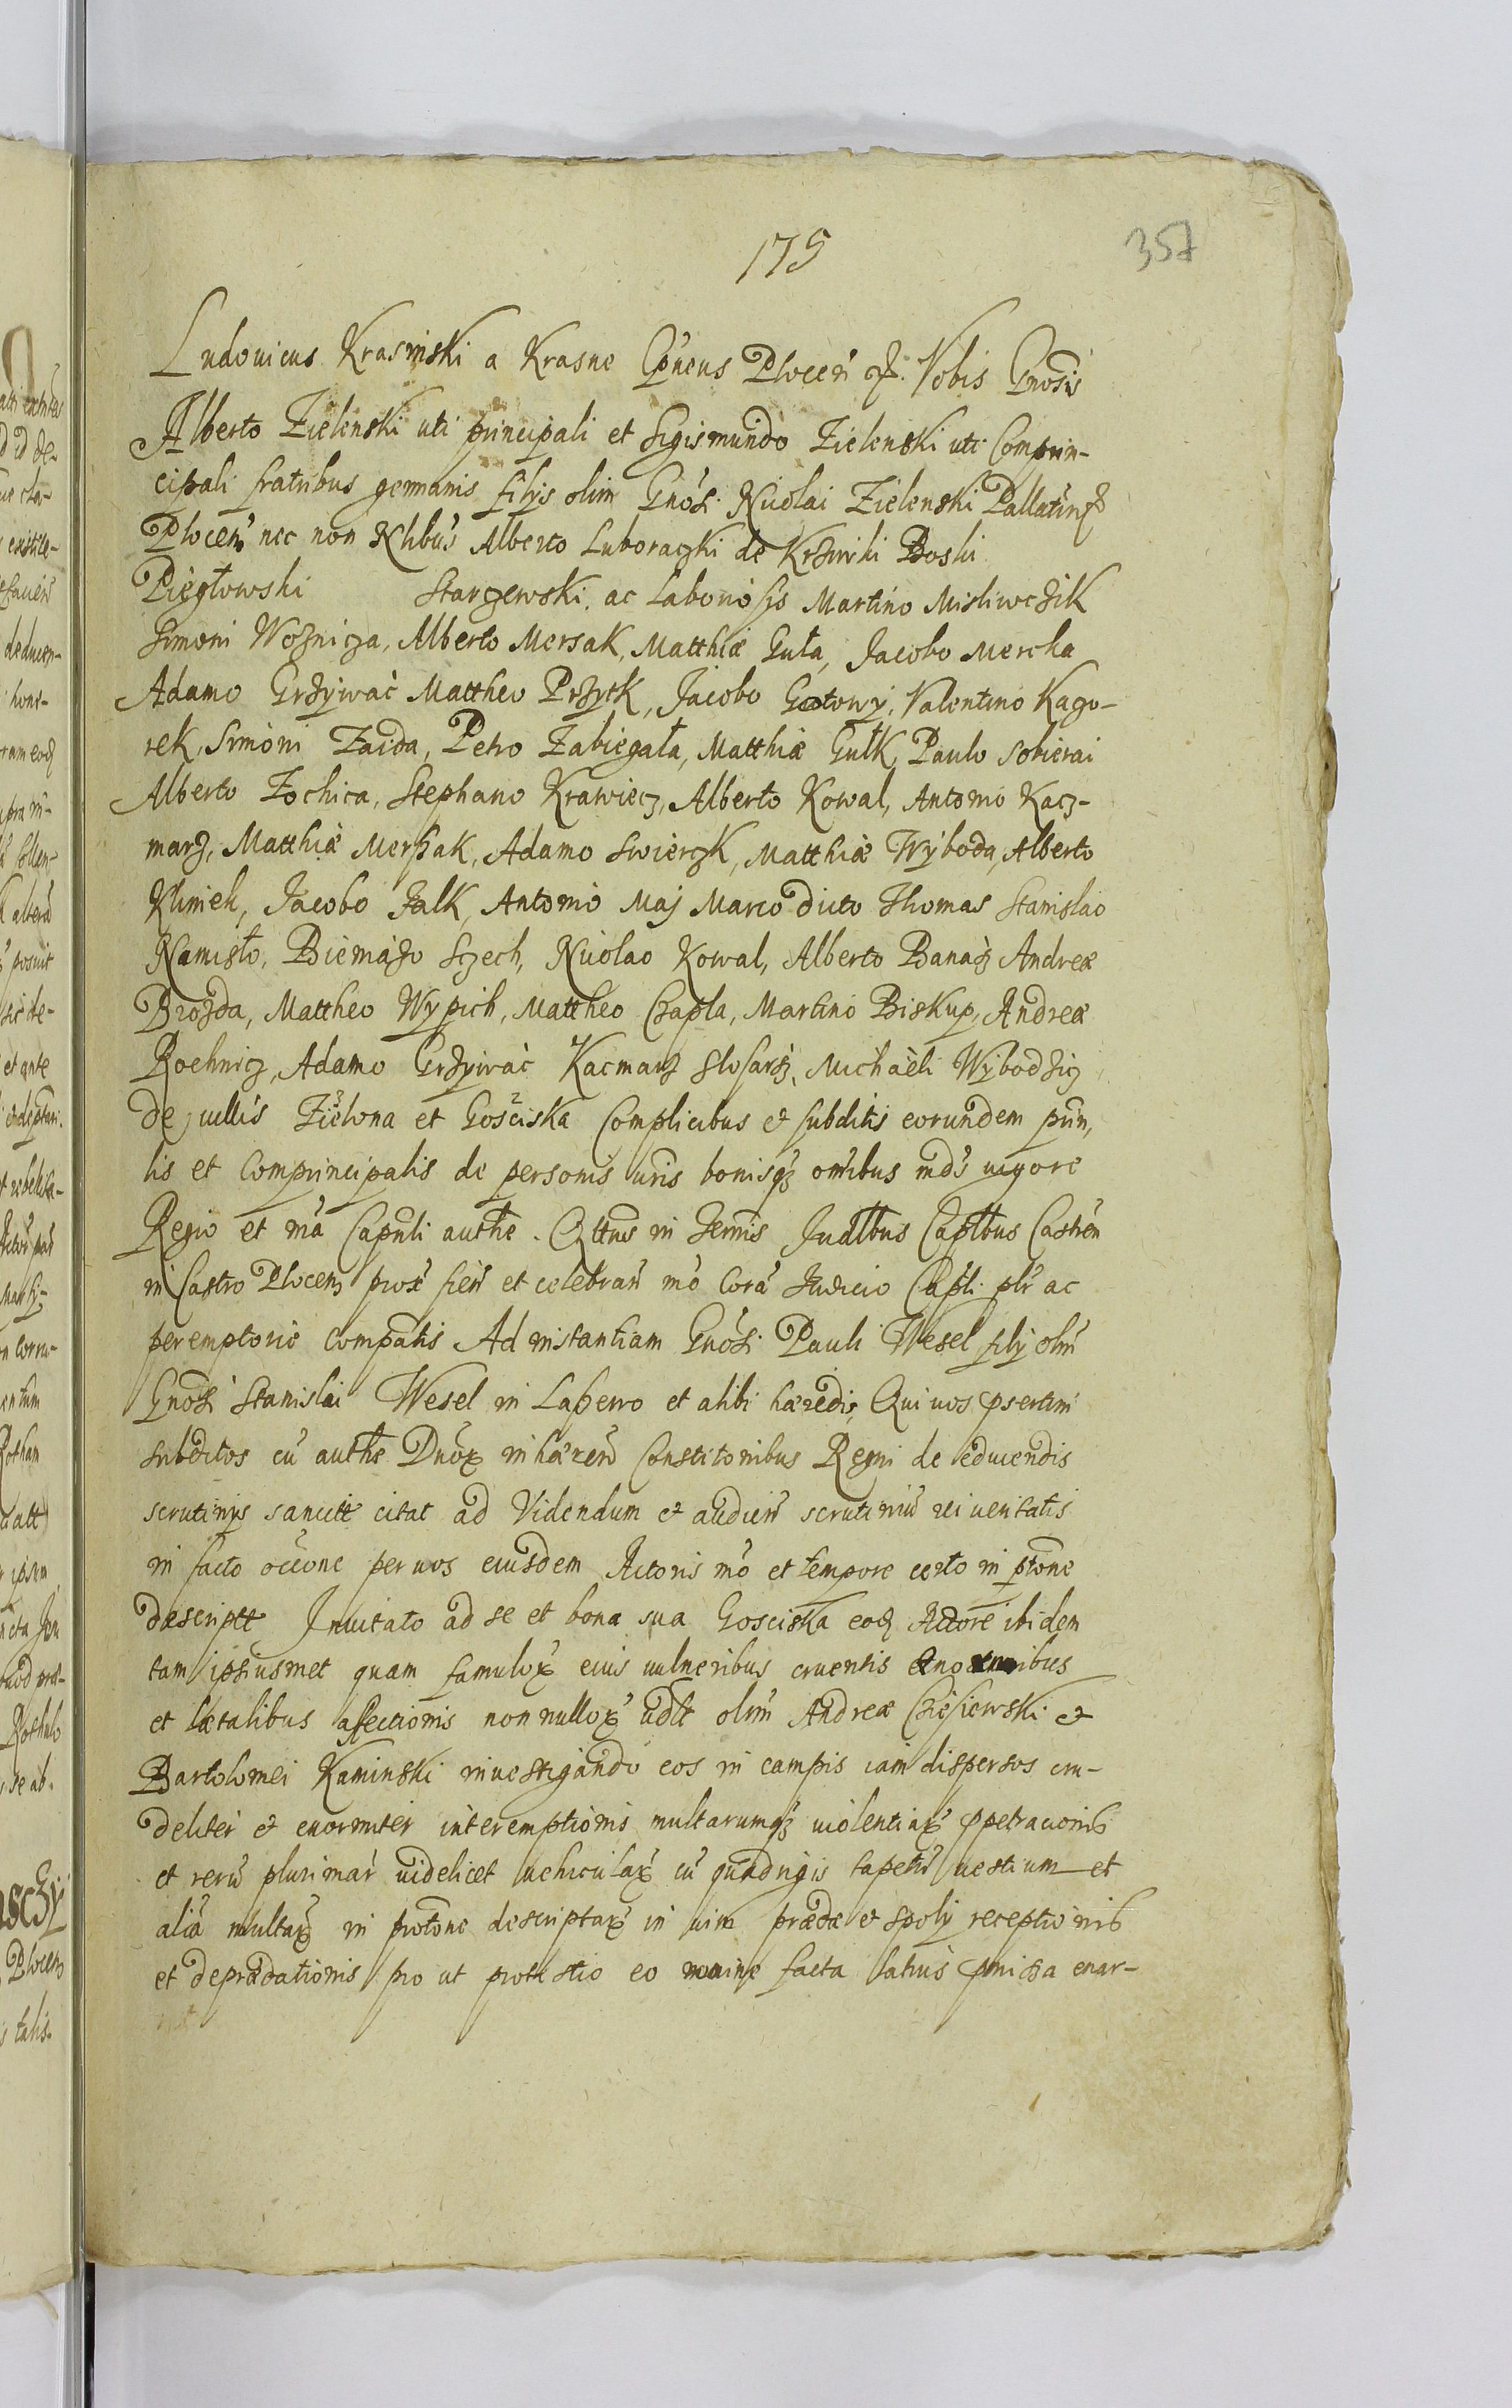 175
357
Ludouicus Krasinski a Krasne Cpneus Plocen &. Vobis Gnosis
Alberto Zielenski uti principali et Sigismundo Zielenski uti Comprin-
cipali fratribus germanis filijs olim Gnosi Nicolai Zielenski Pallatini
Plocen nec non Nlibus Alberto Luboraczki de Krzwiki Boski
Pięgłowski Starzewski, ac Laboriosis Martino Misliwczik
Simoni Woznicza, Alberto Mersak, Matthiæ Guła, Jacobo Mercha
Adamo Grzywac Mattheo Przytk, Jacobo Gotowy, Valentino Kago-
rek, Simoni Zaida, Petro Zabiegała, Matthiæ Gułk, Paulo Sobierai
Alberto Zochica, Stephano Krawiecz, Alberto Kowal, Antonio Kacz-
marz, Matthiæ Merszak, Adamo Swierczk, Matthiæ Wyboda, Alberto
Klimek, Jacobo Jalk, Antonio Maj Marco dicto Thomas Stanislao
Namisło, Biernazo Szech, Nicolao Kowal, Alberto Banasz Andreæ
Brozda, Mattheo Wypich, Mattheo Czapla, Martino Biskup, Andreæ
Roehnicz, Adamo Grzywac Kacmarz Slosarz, Michaëli Wybodzicz
de uillis Zielona et Gosciska Complicibus et subditis eorundem prin,
lis et Comprincipalis de personis uris bonisq omibus mds uigore
Regio et ma Capnli authe. Qttus in Termis Judlbus Caplbus Castren
in Castro Plocen prox fien et celebran mo Cora Judicio Capli plr ac
peremptorie compatis Ad instantiam Gnosi Pauli Wesel filij olim
Gnosi Stanislai Wesel in Laszewo et alibi hæredis, Qui uos psertim
subditos cu authe Dnox inhæren Constitonibus Regni de educendis
scrutinijs sancitt citat ad Videndum et audien scrutiniu rei ueritatis
in facto occone per uos eiusdem Actoris mo et tempore certo in ptone
descriptt Inuitato ad se et bona sua Gosciska eod Actore ibidem
tam ipsiusmet quam famulox eius uulneribus cruentis enormibus
et lætalibus affectionis nonnullox udlt olim Andreæ Ciesiewski et
Bartolomei Kaminski inuestigando eos in campis iam dispersos cru-
deliter et enormiter interemptionis multarumq uiolentiax ppetracionis
et reru plurimar uidelicet uehiculax cu quadrigis tapetu uestium et
alia multax in protone descriptax in uim prædæ et spolij receptionis
et deprædationis pro ut protestio eo noaine facta latius pmissa enar-